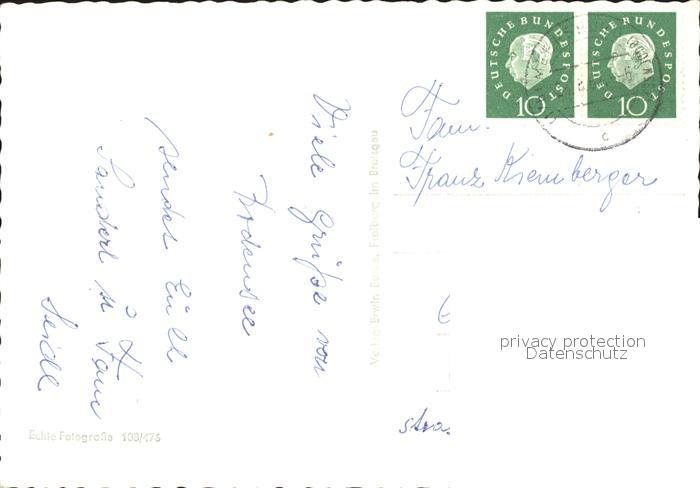 DEUTSCHE BUNDESPOST
10
DEUTSCHE BUNDESPOST
10
c
Viele Grüße von
Bodensee
sendet Euch
u Fam
Seidl
Fam.
Franz Kiemberger
stra.
privacy protection
Datenschutz
Verlag Erwin Freiburg im Breisgau
Echte Fotografie 108/476